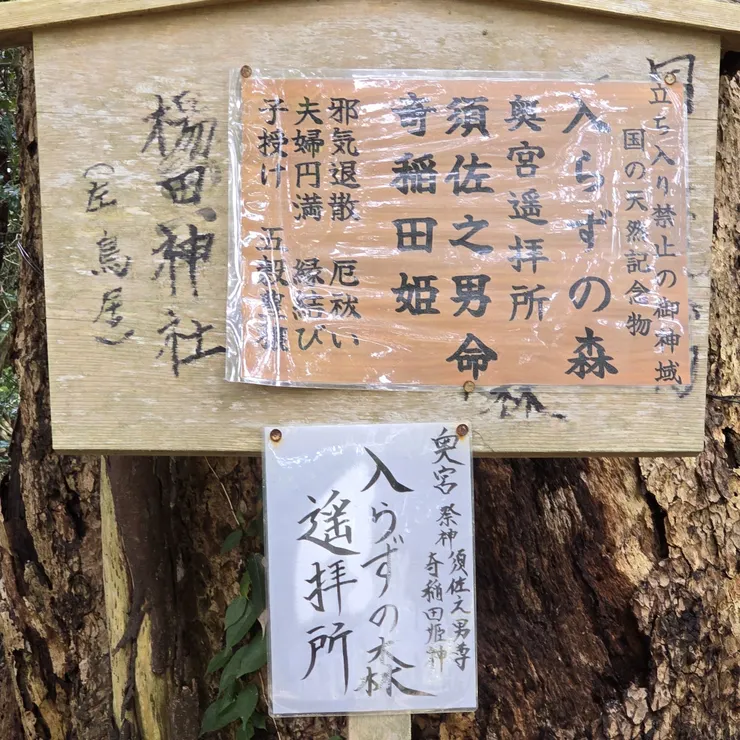 立ち入り禁止の御神域
国の天然記念物
入らずの森
奥宮遥拝所
須佐之男命
奇稲田姫
邪気退散 厄祓い
夫婦円満 縁結び
子授け 五穀豊穣
楊田神社
奥宮 祭神 須佐之男尊
奇稲田姫神
入らずの森
遥拝所